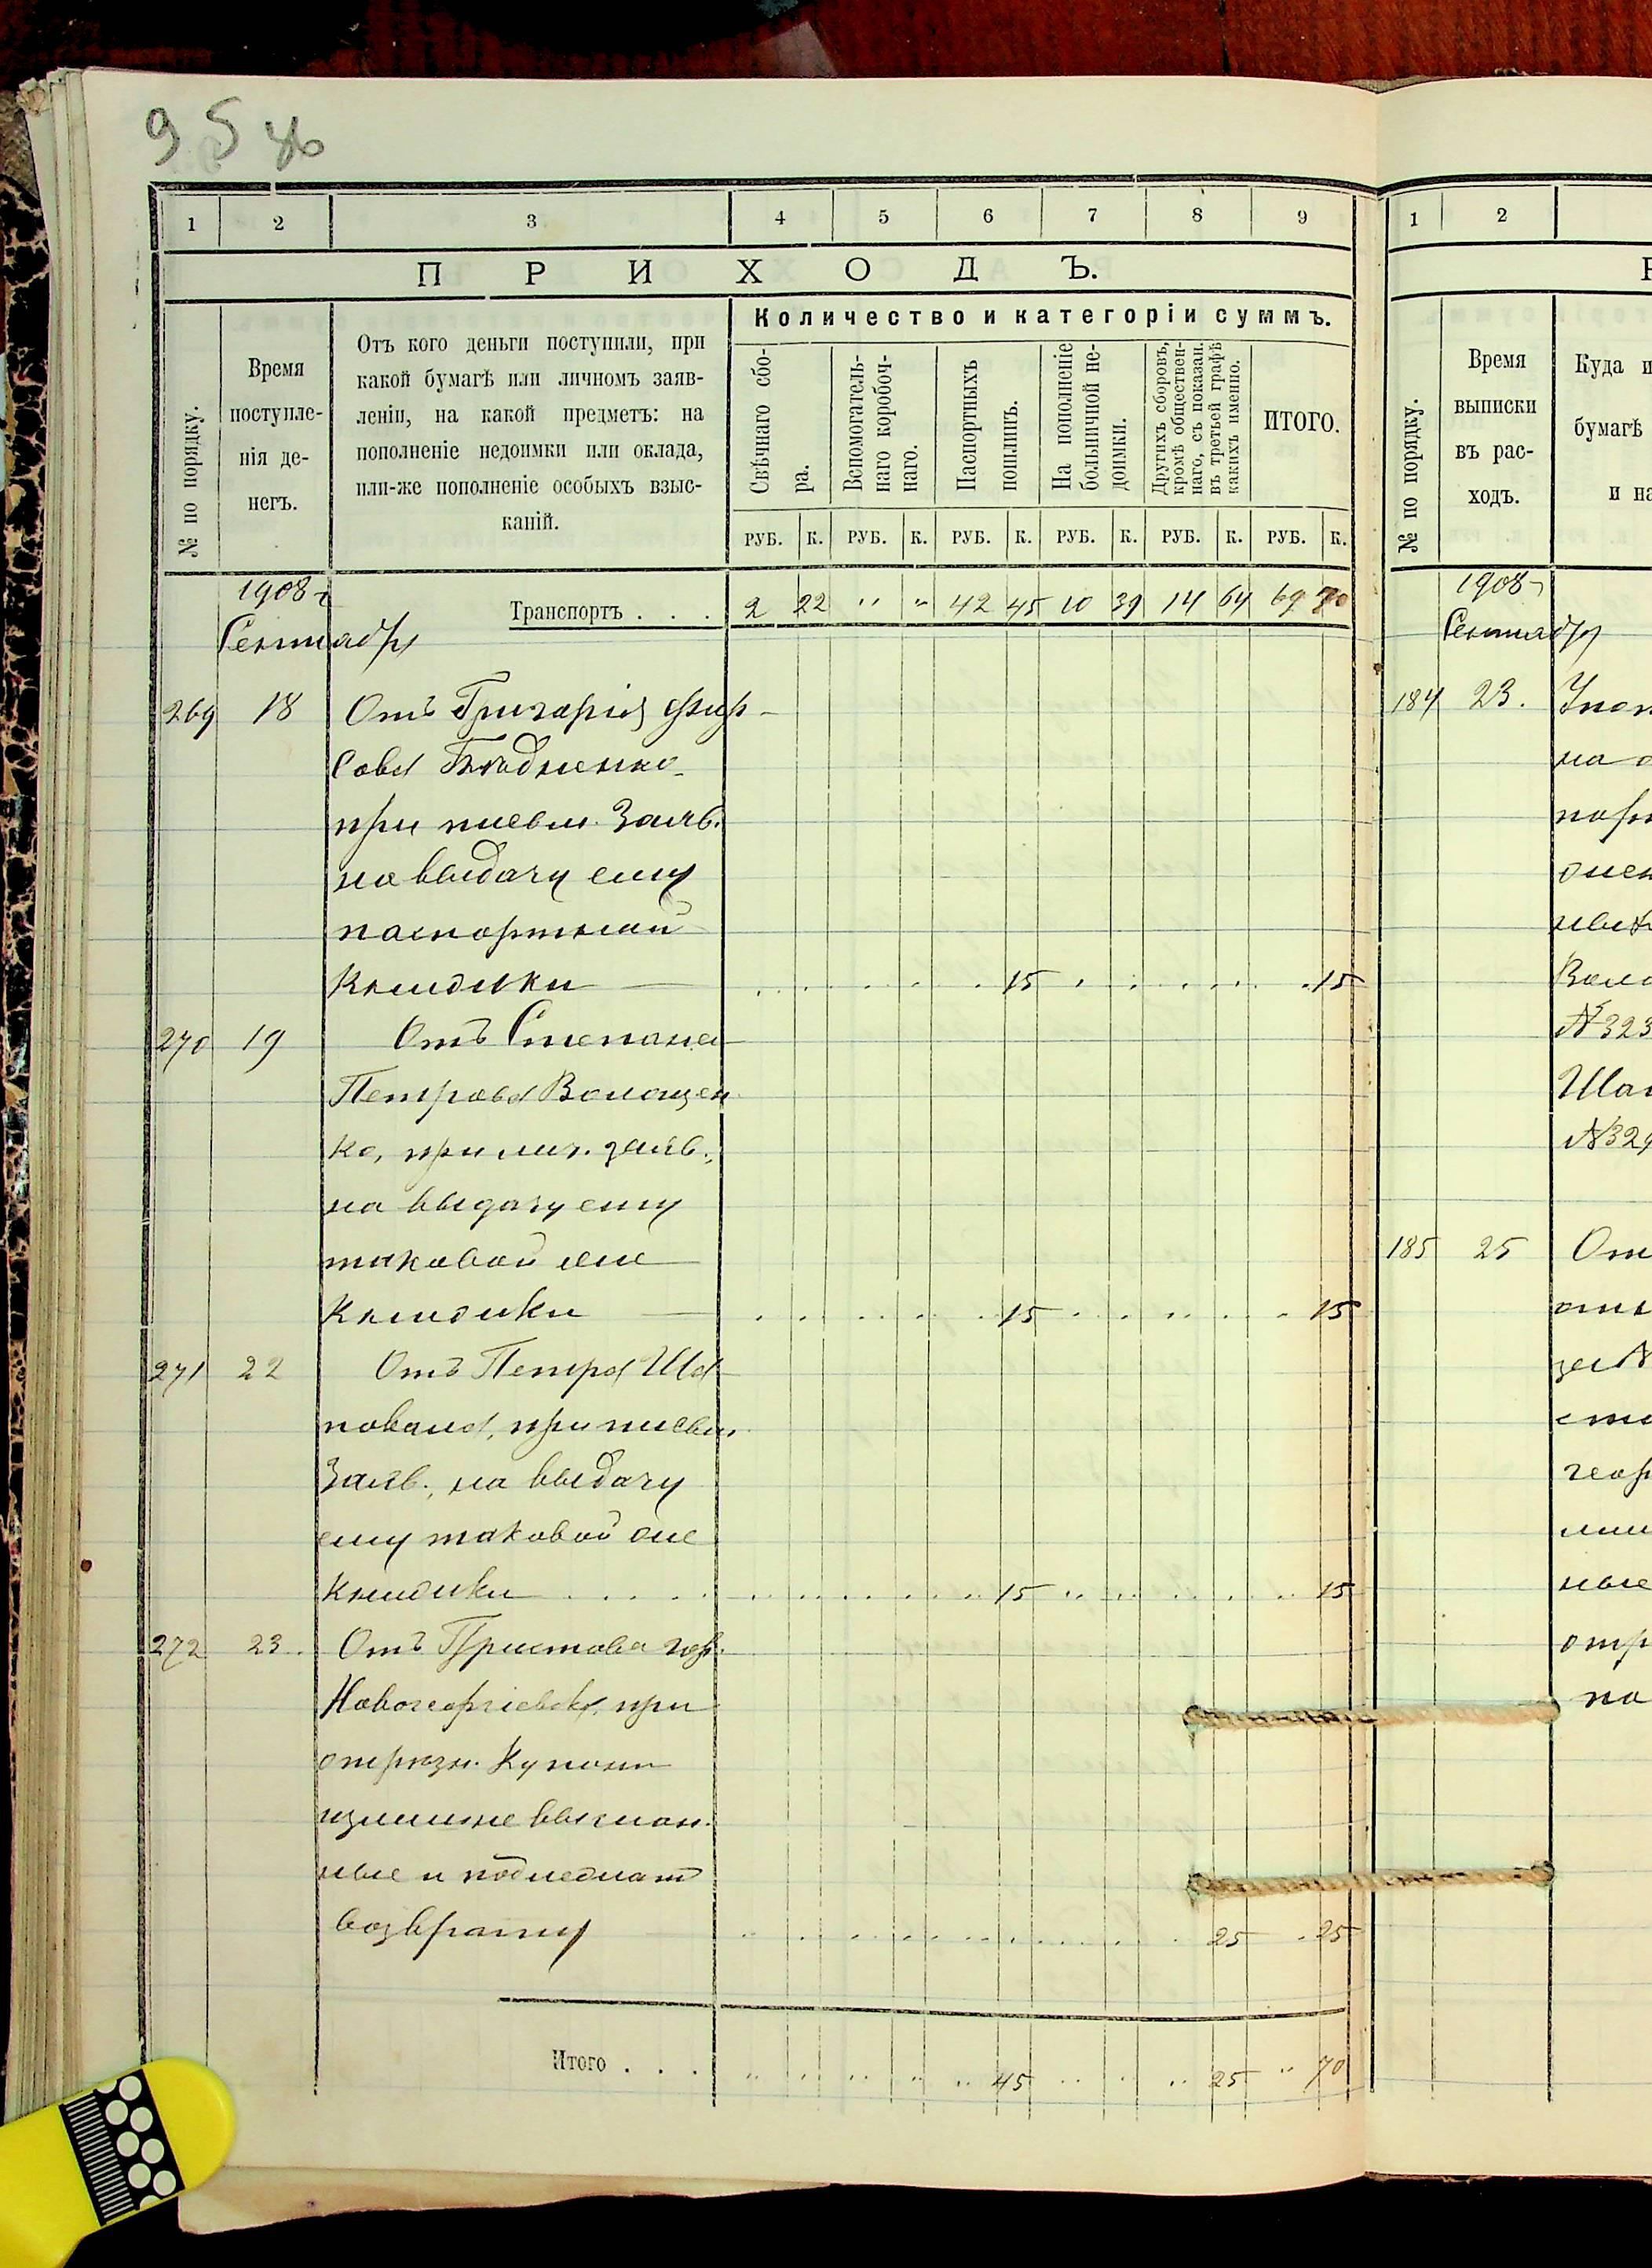 95 об
1 2 3 4 5 6 7 8 9
ПРИХОДЪ.
№ по порядку.
Время
поступле-
нія де-
негъ.
Отъ кого деньги поступили, при
какой бумагѣ или личномъ заяв-
леніи, на какой предметъ: на
пополненіе недоимки или оклада,
или-же пополненіе особыхъ взыс-
каній.
Количество и категоріи суммъ.
Свѣчнаго сбо-
ра.
Вспомогатель-
наго коробоч-
наго.
Паспортныхъ
пошлинъ.
На пополненіе
больничной не-
доимки.
Другихъ сборовъ,
кромѣ обществен-
наго, съ показан.
въ третьей графѣ
какихъ именно.
ИТОГО.
РУБ. К. РУБ. К. РУБ. К. РУБ. К. РУБ. К. РУБ. К.
1908 г
Транспортъ . . . 2 22 " " 42 45 10 39 14 64 69 70
Сентябрь
269 18 Отъ Григорія Фир-
сова
при письм. Заяв.
на выдачу ему
паспортной
Книжки — 15 15
270 19 Отъ Степана
Петрова Волощен
ко, при лич. заяв.,
на выдачу ему
таковой же
Книжки — 15 15
271 22 Отъ Петра Ша
повала, при письм.
Заяв., на выдачу
ему таковой же
Книжки . . . . 15 15
272 23. Отъ Пристава гор.
Новогеоргіевска, при
отрѣзн. Купонѣ
излишне выслан.
ные и подлежат
возврату 25 25
Итого . . . " " " " " 45 " " " 25 " 70
1 2
№ по порядку.
Время
выписки
въ рас-
ходъ.
Куда и
бумагѣ
и на
1908 г
Сентябрь
184 23.
на
№ 323
№ 329
185 25 От
отр
по